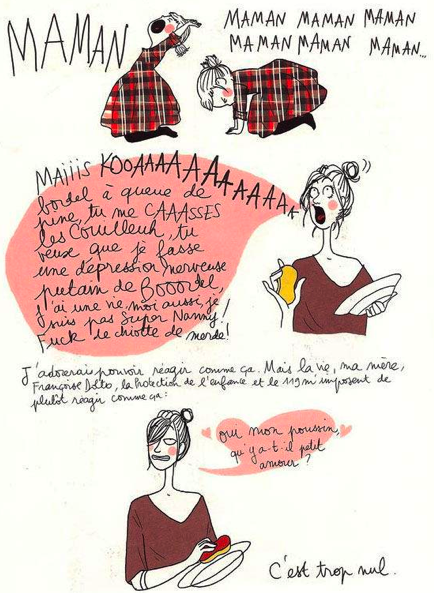 MAMAN
MAMAN MAMAN MAMAN
MAMAN MAMAN MAMAN...
MAIIIS KOOAAAAAAAAAAAAAA
bordel à queue de
pine, tu me CAAASSES
les Couilleuh, tu
veux que je fasse
une dépression nerveuse
putain de BOOOrdel,
j'ai une vie, moi aussi, je
suis pas Super Nanny!
Fuck de chiotte de merde!
J'adorerais pouvoir réagir comme ça. Mais la vie, ma mère,
Françoise Dolto, la Protection de l'enfance et le 119 m'imposent de
plutôt réagir comme ça:
oui mon poussin,
qu'y a-t-il petit
amour?
C'est trop nul.